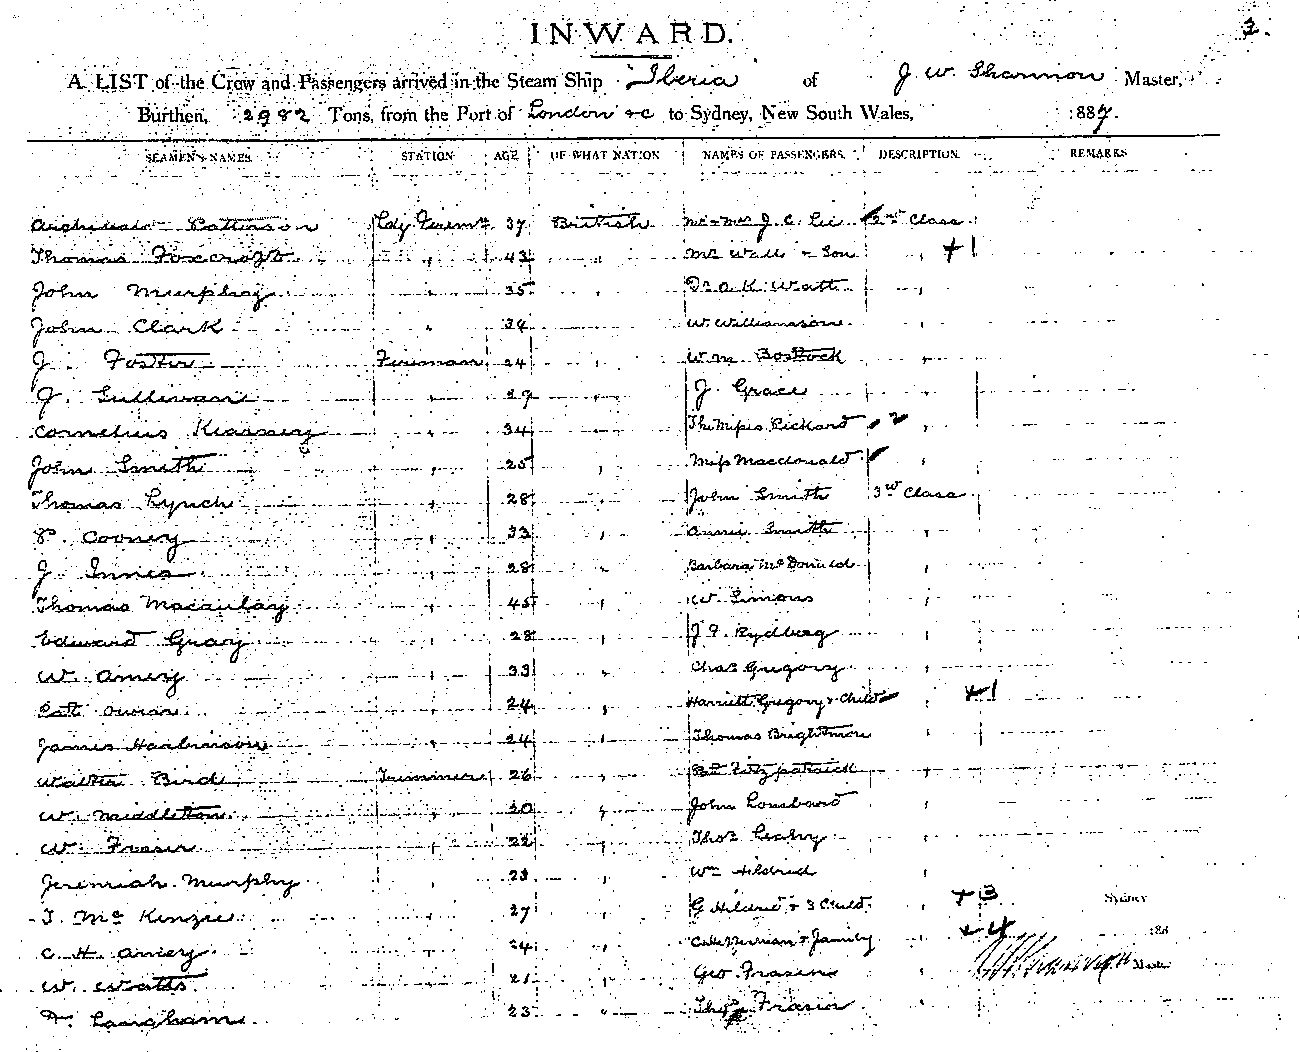 3.
INWARD.
A LIST of the Crew and Passengers arrived in the Steam Ship Iberia of J. W. Shannon Master,
Burthen, 2982 Tons, from the Port of London &c to Sydney, New South Wales, 1887.
SEAMEN'S NAMES. STATION AGE OF WHAT NATION NAMES OF PASSENGERS. DESCRIPTION. REMARKS
Pattinson 37 British Mr & Mrs J. C. Lee 2nd Class
Thomas Foxcroft " 43 " Mr Wall & Son " +1
John Murphy " 35 " Dr A K Watt "
John Clark " 34 " W. Williamson "
J. Foster Fireman 24 " Wm Bostock "
J. Sullivan " 29 " J Grace "
Cornelius Kearney " 34 " The Misses Pickard 2 "
John Smith " 25 " Miss Macdonald "
Thomas Lynch " 28 " John Smith 3rd Class
P. Cooney " 33 " Annie Smith "
J. Innes " 28 " Barbara McDonald "
Thomas Macaulay " 45 " W. Simons "
Edward Gray " 28 " Rydberg "
W. Amery " 33 " Chas Gregory "
Pat 24 " Harriett Gregory & Child " +1
James " 24 " Thomas Brightman "
Walter Bird Trimmer 26 " Fitzpatrick "
W. Middleton " 20 " John Lombard "
W. Fraser " 22 " Thos Leahy "
Jeremiah Murphy " 23 " Wm Hildred "
T. McKenzie " 27 " G Hildred & 3 Child " +3 Sydney
C. H. Amery " 24 " & Family " +4 188
W. Watts " 21 " Geo. Master
Langham 23 " Thos Fraser "